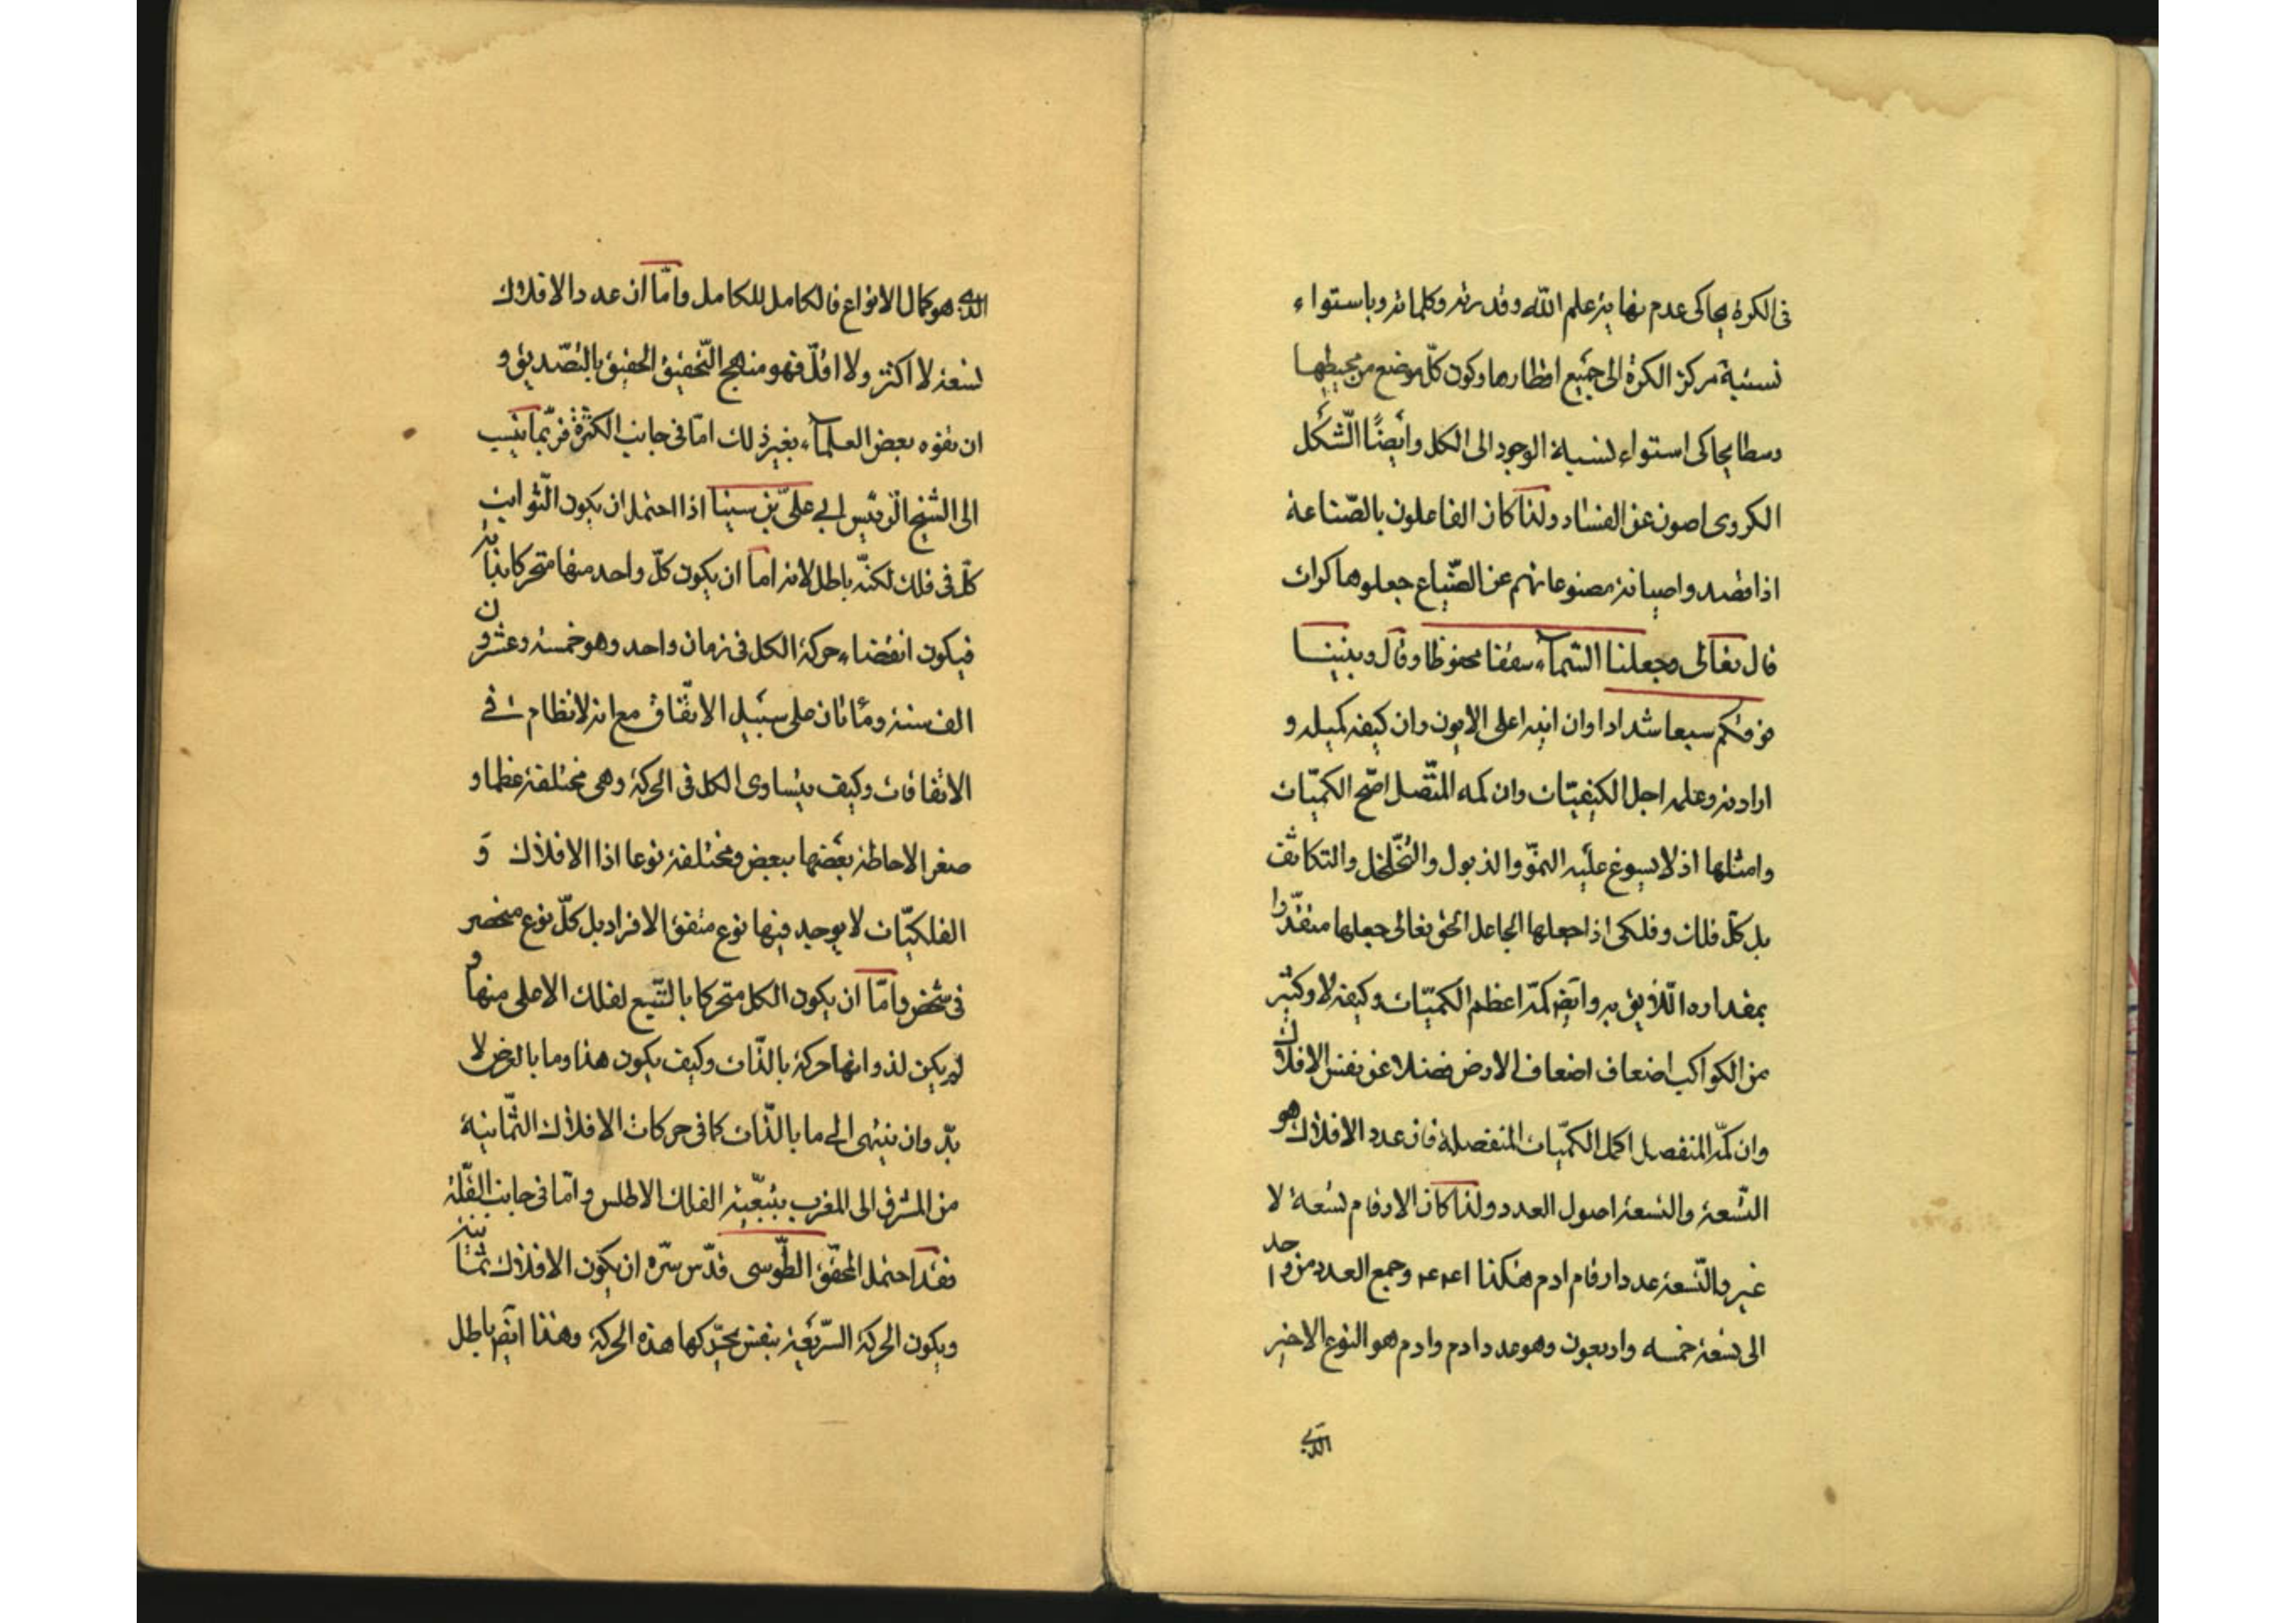 فى الكرة يحاكى عدم نهاية علم الله وقدرته وكلماته وباستواء
نسبة مركز الكرة الى جميع اقطارها وكون كلّ موضع من محيطها
وسطا يحاكى استواء نسبة الوجود الى الكل وأيضًا الشّكل
الكروى اصون عن الفساد ولذا كان الفاعلون بالصّناعة
اذا قصدوا صيانة مصنوعاتهم عن الضّياع جعلوها كرات
قال تعالى وجعلنا السّمآء سقفا محفوظا وقال وبنينا
فوقكم سبعا شدادا وان اينه اعلى الايون وان كيفه كميله و
ارادته وعلمه اجل الكيفيّات وان كمه المتّصل اصّح الكميّات
وامثلها اذ لا يسوغ عليه النموّ والذبول والتّخلخل والتكاثف
بل كلّ فلك وفلكى اذا جعلها الجاعل الحق تعالى جعلها متقدّرا
بمقداره اللّايق به وايضا كمّه اعظم الكميّات وكيفه لا وكثير
من الكواكب اضعاف اضعاف الارض فضلا عن نفس الافلاك
وان كمّه المنفصل اكمل الكميّات المنفصلة فان عدد الافلاك هو
التّسعة والتسعة اصول العدد ولذا كان الارقام تسعة لا
غير والتّسعة عدد ارقام ادم هكذا ١٤٤٠ وجمع العدد من واحد
الى تسعة خمسه واربعون وهو عدد ادم وادم هو النوع الاخير
الذى
الذى هو كمال الانواع فالكامل للكامل وامّا ان عدد الافلاك
تسعة لا اكثر ولا اقلّ فهو منهج التّحقيق الحقيق بالتّصديق و
ان تفوه بعض العلمآء بغير ذلك امّا فى جانب الكثرة فربّما ينسب
الى الشّيخ الرّئيس ابى علىّ بن سينا اذا احتمل ان يكون الثّوابت
كلّ فى فلك لكنّه باطل لانه اما ان يكون كلّ واحد منها متحركا بذاته
فيكون انقضاء حركة الكل فى زمان واحد وهو خمسة وعشرون
الف سنة ومأتان على سبيل الاتّفاق مع انه لا نظام فى
الاتفاقات وكيف يتساوى الكل فى الحركة وهى مختلفة عظما و
صغر الاحاطة بعضها ببعض ومختلفة نوعا اذا الافلاك و
الفلكيّات لا يوجد فيها نوع متفق الافراد بل كلّ نوع منحصر
فى شخص وامّا ان يكون الكل متحركا بالتّبع لفلك الاعلى منها و
لم يكن لذواتها حركة بالذّات وكيف يكون هذا وما بالعرض لا
بدّ وان ينتهى الى ما بالذّات كما فى حركات الافلاك الثّمانية
من المشرق الى المغرب بتبعّية الفلك الاطلس وامّا فى جانب القلّة
فقد احتمل المحقّق الطّوسى قدّس سرّه ان يكون الافلاك ثمانية
ويكون الحركة السّريعة بنفس يحرّكها هذه الحركة وهذا ايضا باطل